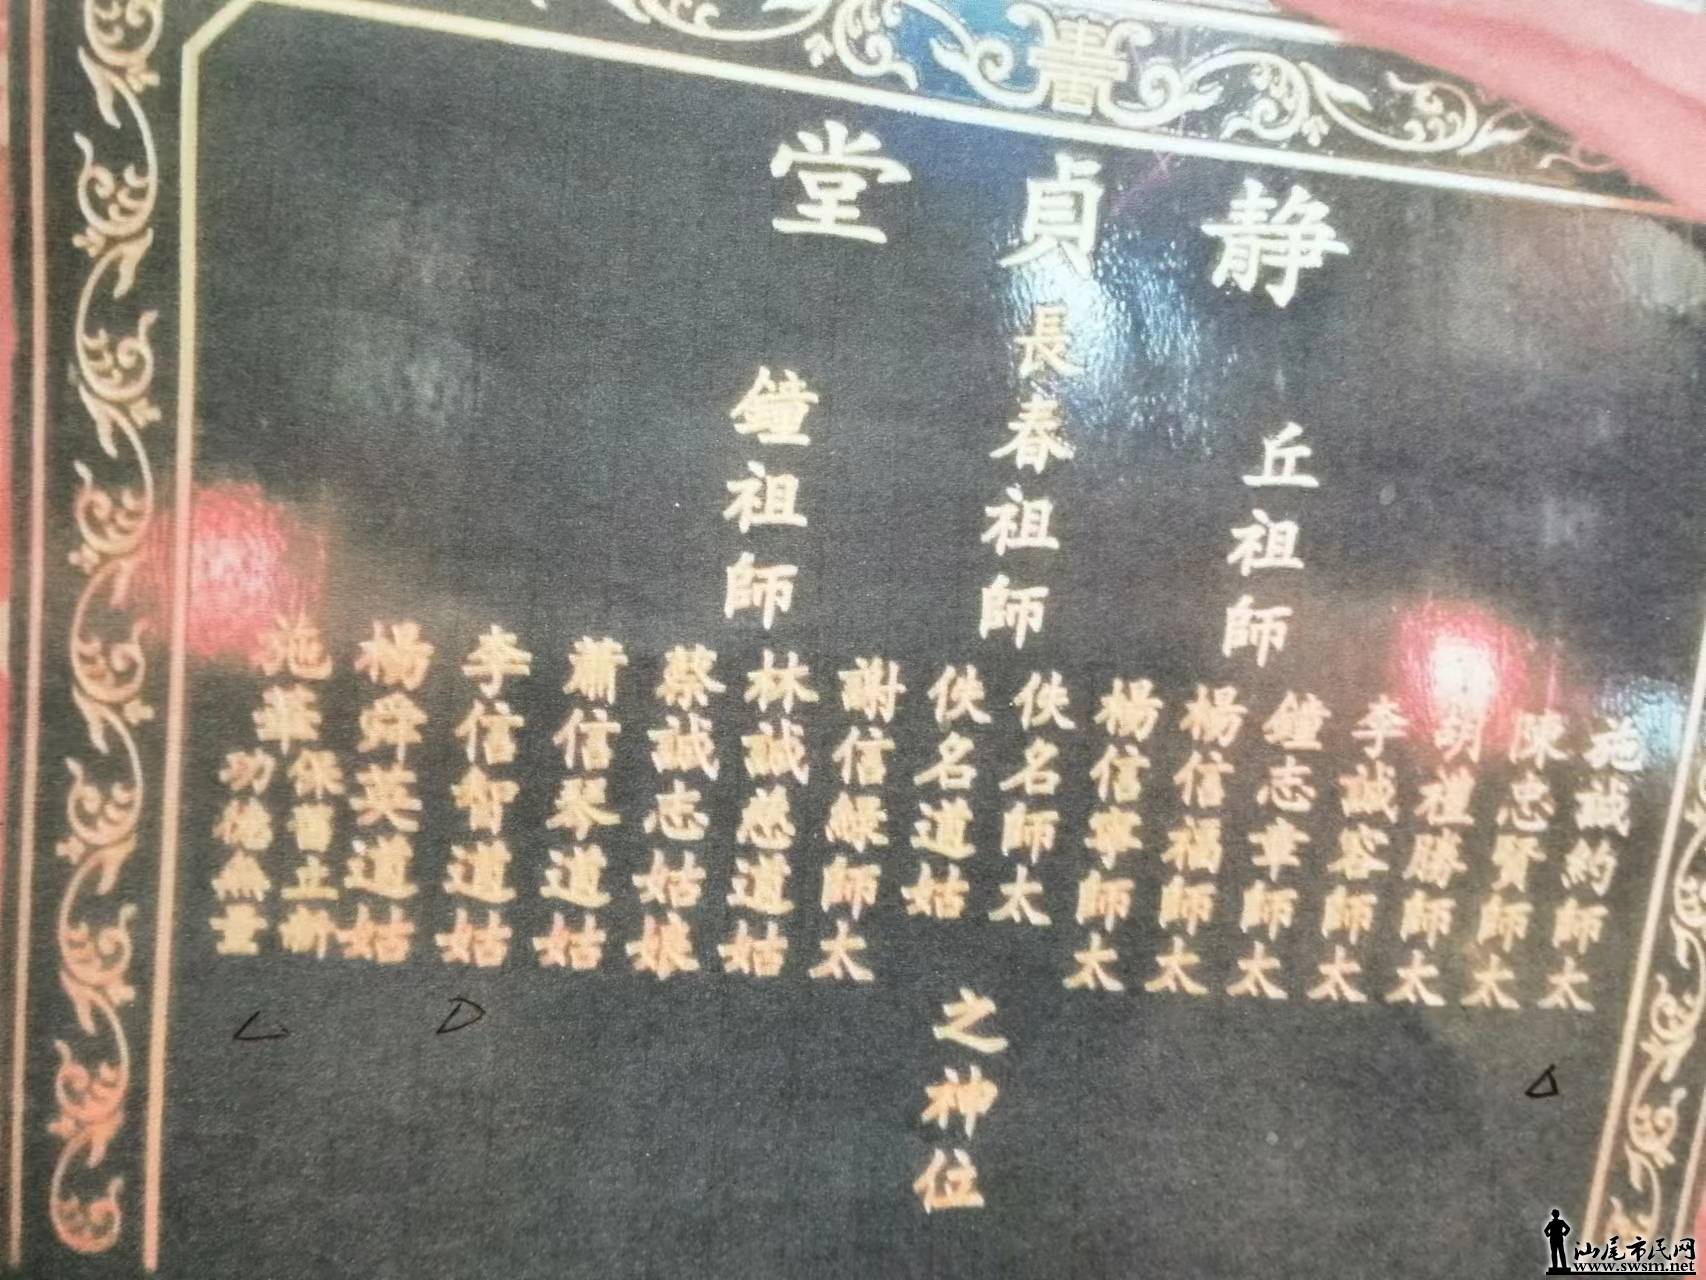 静貞堂
丘祖師
長春祖師
鐘祖師
施誠約師太
陳忠賢師太
胡祖勝師太
李誠容師太
鐘志幸師太
楊信福師太
楊信寧師太
佚名師太
佚名道姑
謝信緣師太
林誠慈道姑
蔡誠志姑娘
蕭信琴道姑
李信智道姑
楊舜英道姑
施華
功德
之神位
汕尾市民网
www.swsm.net